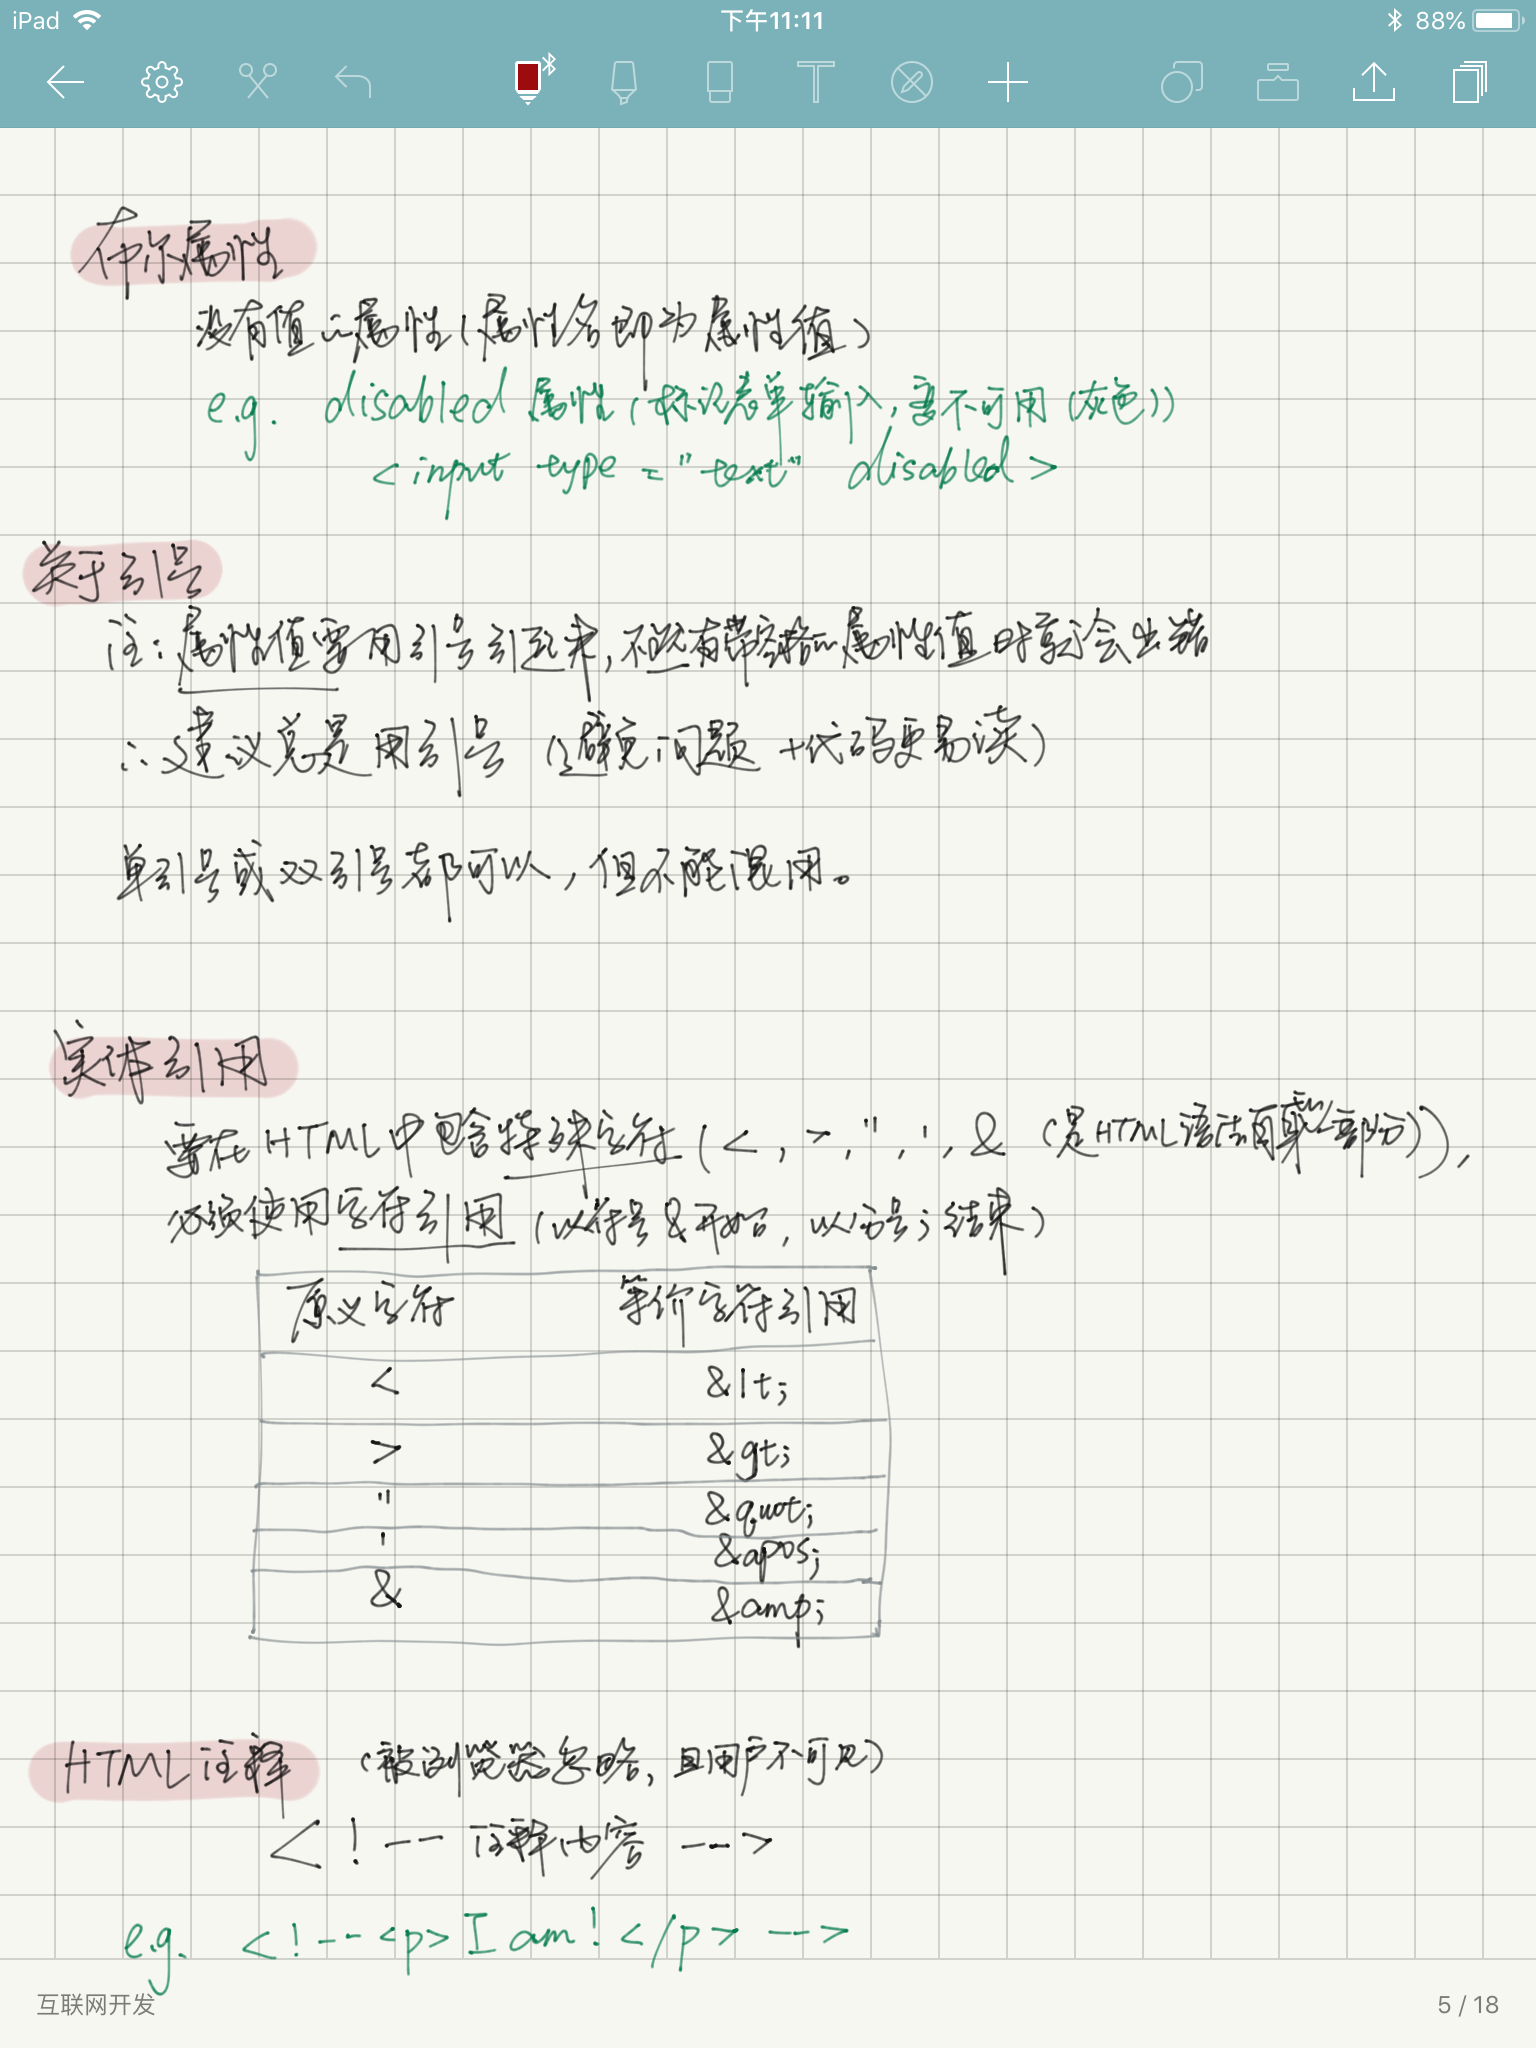 iPad 下午11:11 88%
布尔属性
没有值的属性(属性名即为属性值)
e.g. disabled 属性(标识表单输入,意不可用(灰色))
<input type="text" disabled>
关于引号
注:属性值要用引号引起来,不然有带空格的属性值时就会出错
∴建议总是用引号(避免问题+代码更易读)
单引号或双引号都可以,但不能混用。
实体引用
要在HTML中包含特殊字符(<,>,",',&(是HTML语法自身的一部分)),
必须使用字符引用(以符号&开始,以分号;结束)
原义字符 等价字符引用
< &lt;
> &gt;
" &quot;
' &apos;
& &amp;
HTML注释 (被浏览器忽略,且用户不可见)
<!-- 注释内容 -->
e.g. <!--<p>I am!</p> -->
互联网开发 5 / 18